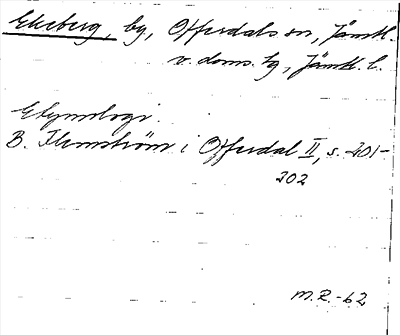 Ekeberg, by, Offerdals sn, Jämtl.
v. doms. hg, Jämtl. l.
Etymologi.
B. Flemström i Offerdal II, s. 201-
202
M.R.-62